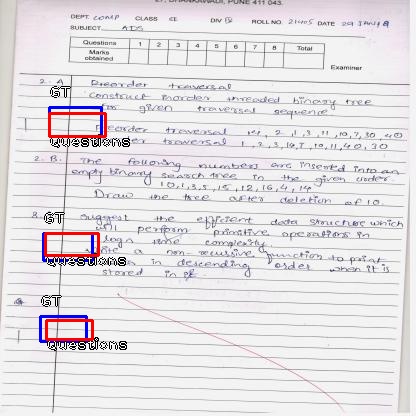 27, DHANKAWADI, PUNE 411 043.
DEPT. COMP CLASS DIV ROLL NO. 21405 DATE
SUBJECT ADS
Questions 1 2 3 4 5 6 7 8 Total
Marks obtained
Examiner
2. A Preorder traversal
GT Construct inorder threaded binary tree
for given traversal sequence
Preorder traversal 14, 2, 1, 3, 11, 10, 7, 30, 40
Questions traversal 1, 2, 3, 14, 7, 10, 11, 40, 30
2. B. The following numbers are inserted into an
empty binary search tree in the given order.
10, 1, 3, 5, 15, 12, 16, 4, 14
Draw the tree after deletion of 10.
GT
suggest the efficient data structure which
will perform primitive operations in
logn time complexity.
write a non-recursive function to print
Questions in descending order when it is
stored in
GT
Questions